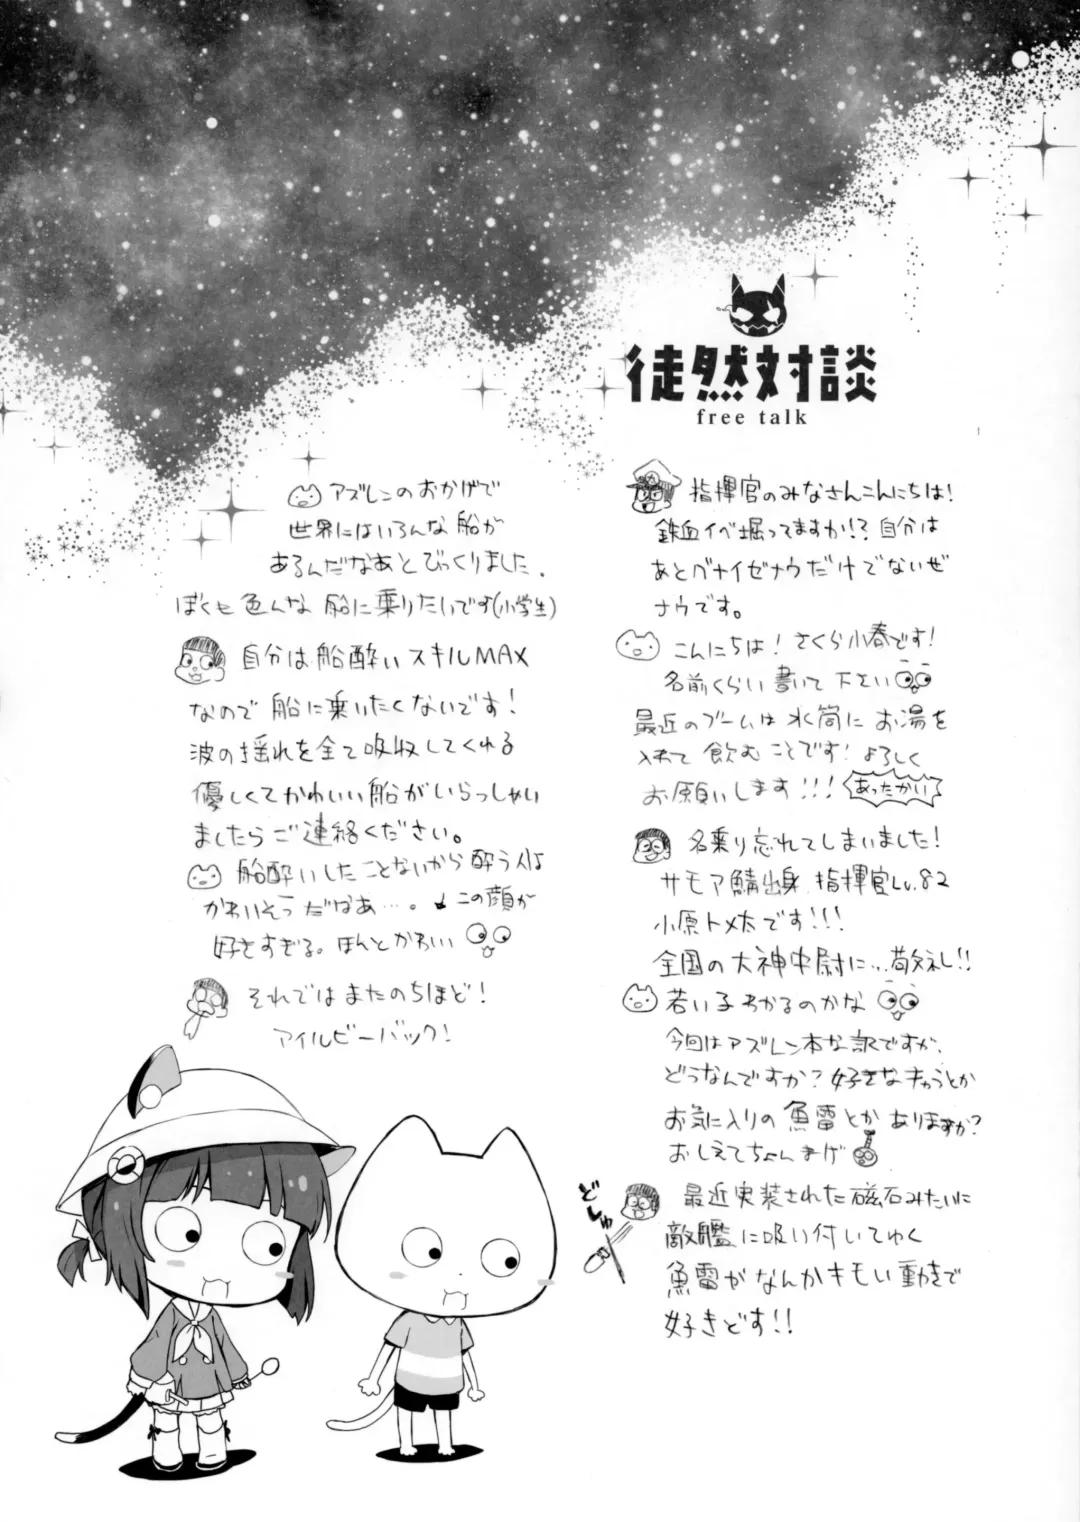 徒然対談
free talk
指揮官のみなさんこんにちは!
鉄血イベ掘ってますか!? 自分は
あとグナイゼナウだけでないぜ
ナウです。
こんにちは! さくら小春です!
名前くらい書いて下さい
最近のブームは水筒にお湯を
入れて飲むことです! よろしく
お願いします!!! あったかい
名乗り忘れてしまいました!
サモア鯖出身 指揮官Lv.82
小原トメ太です!!!
全国の大神中尉に…敬礼!!
若い子わかるのかな
今回はアズレン本な訳ですが、
どうなんですか? 好きなキャラとか
お気に入りの魚雷とかありますか?
おしえてちょんまげ
どしゅ
最近実装された磁石みたいに
敵艦に吸い付いてゆく
魚雷がなんかキモい動きで
好きどす!!
アズレンのおかげで
世界にはいろんな船が
あるんだなあとびっくりました。
ぼくも色んな船に乗りたいです(小学生)
自分は船酔いスキルMAX
なので船に乗いたくないです!
波の揺れを全て吸収してくれる
優しくてかわいい船がいらっしゃい
ましたらご連絡ください。
船酔いしたことないから酔う人は
かわいそうだなあ…。この顔が
好きすぎる。ほんとかわいい
それではまたのちほど!
アイルビーバック!